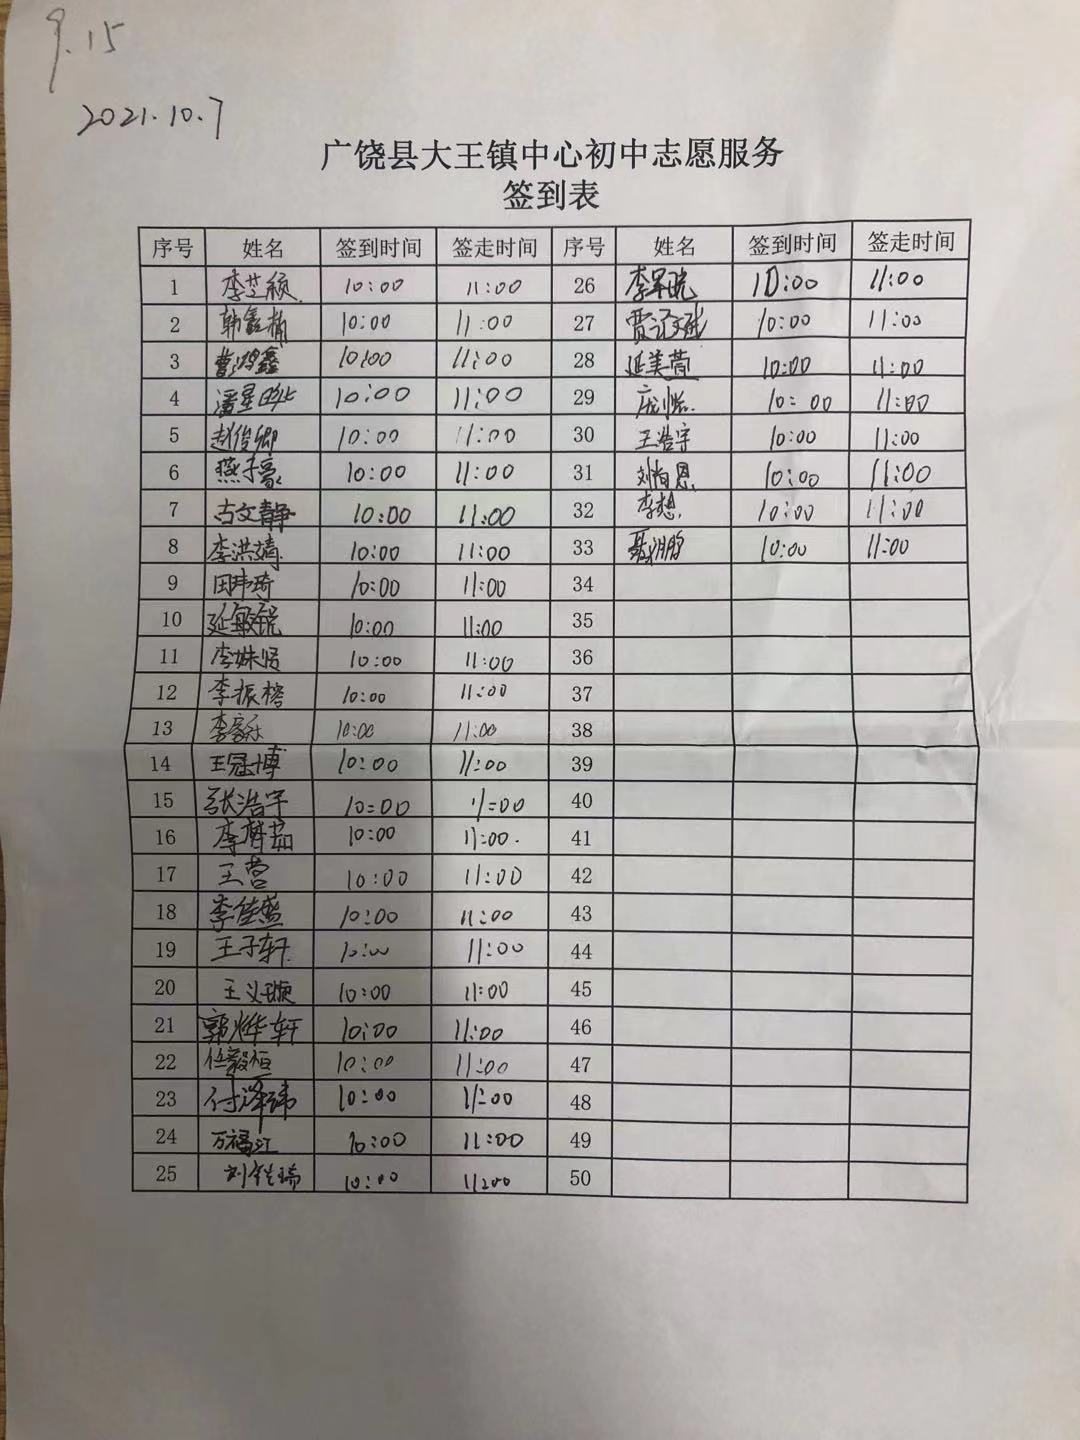 9.15
2021.10.7
广饶县大王镇中心初中志愿服务
签到表
序号 姓名 签到时间 签走时间 序号 姓名 签到时间 签走时间
1 李芝颖 10:00 11:00 26 李昊晓 10:00 11:00
2 韩鑫楠 10:00 11:00 27 贾记斌 10:00 11:00
3 曹鸿鑫 10:00 11:00 28 延美萱 10:00 11:00
4 潘星 10:00 11:00 29 庞 10:00 11:00
5 赵俊卿 10:00 11:00 30 王浩宇 10:00 11:00
6 燕子豪 10:00 11:00 31 刘恩 10:00 11:00
7 古文静 10:00 11:00 32 李想 10:00 11:00
8 李洪婧 10:00 11:00 33 聂 10:00 11:00
9 田玮琦 10:00 11:00 34
10 延敏锐 10:00 11:00 35
11 李姝贤 10:00 11:00 36
12 李振榕 10:00 11:00 37
13 李 10:00 11:00 38
14 王冠博 10:00 11:00 39
15 张浩宇 10:00 11:00 40
16 李梦茹 10:00 11:00. 41
17 王营 10:00 11:00 42
18 李佳盛 10:00 11:00 43
19 王子轩 10:00 11:00 44
20 王义璇 10:00 11:00 45
21 郭烨轩 10:00 11:00 46
22 任毅恒 10:00 11:00 47
23 付泽玮 10:00 11:00 48
24 万福江 10:00 11:00 49
25 刘瑞 10:00 11:00 50